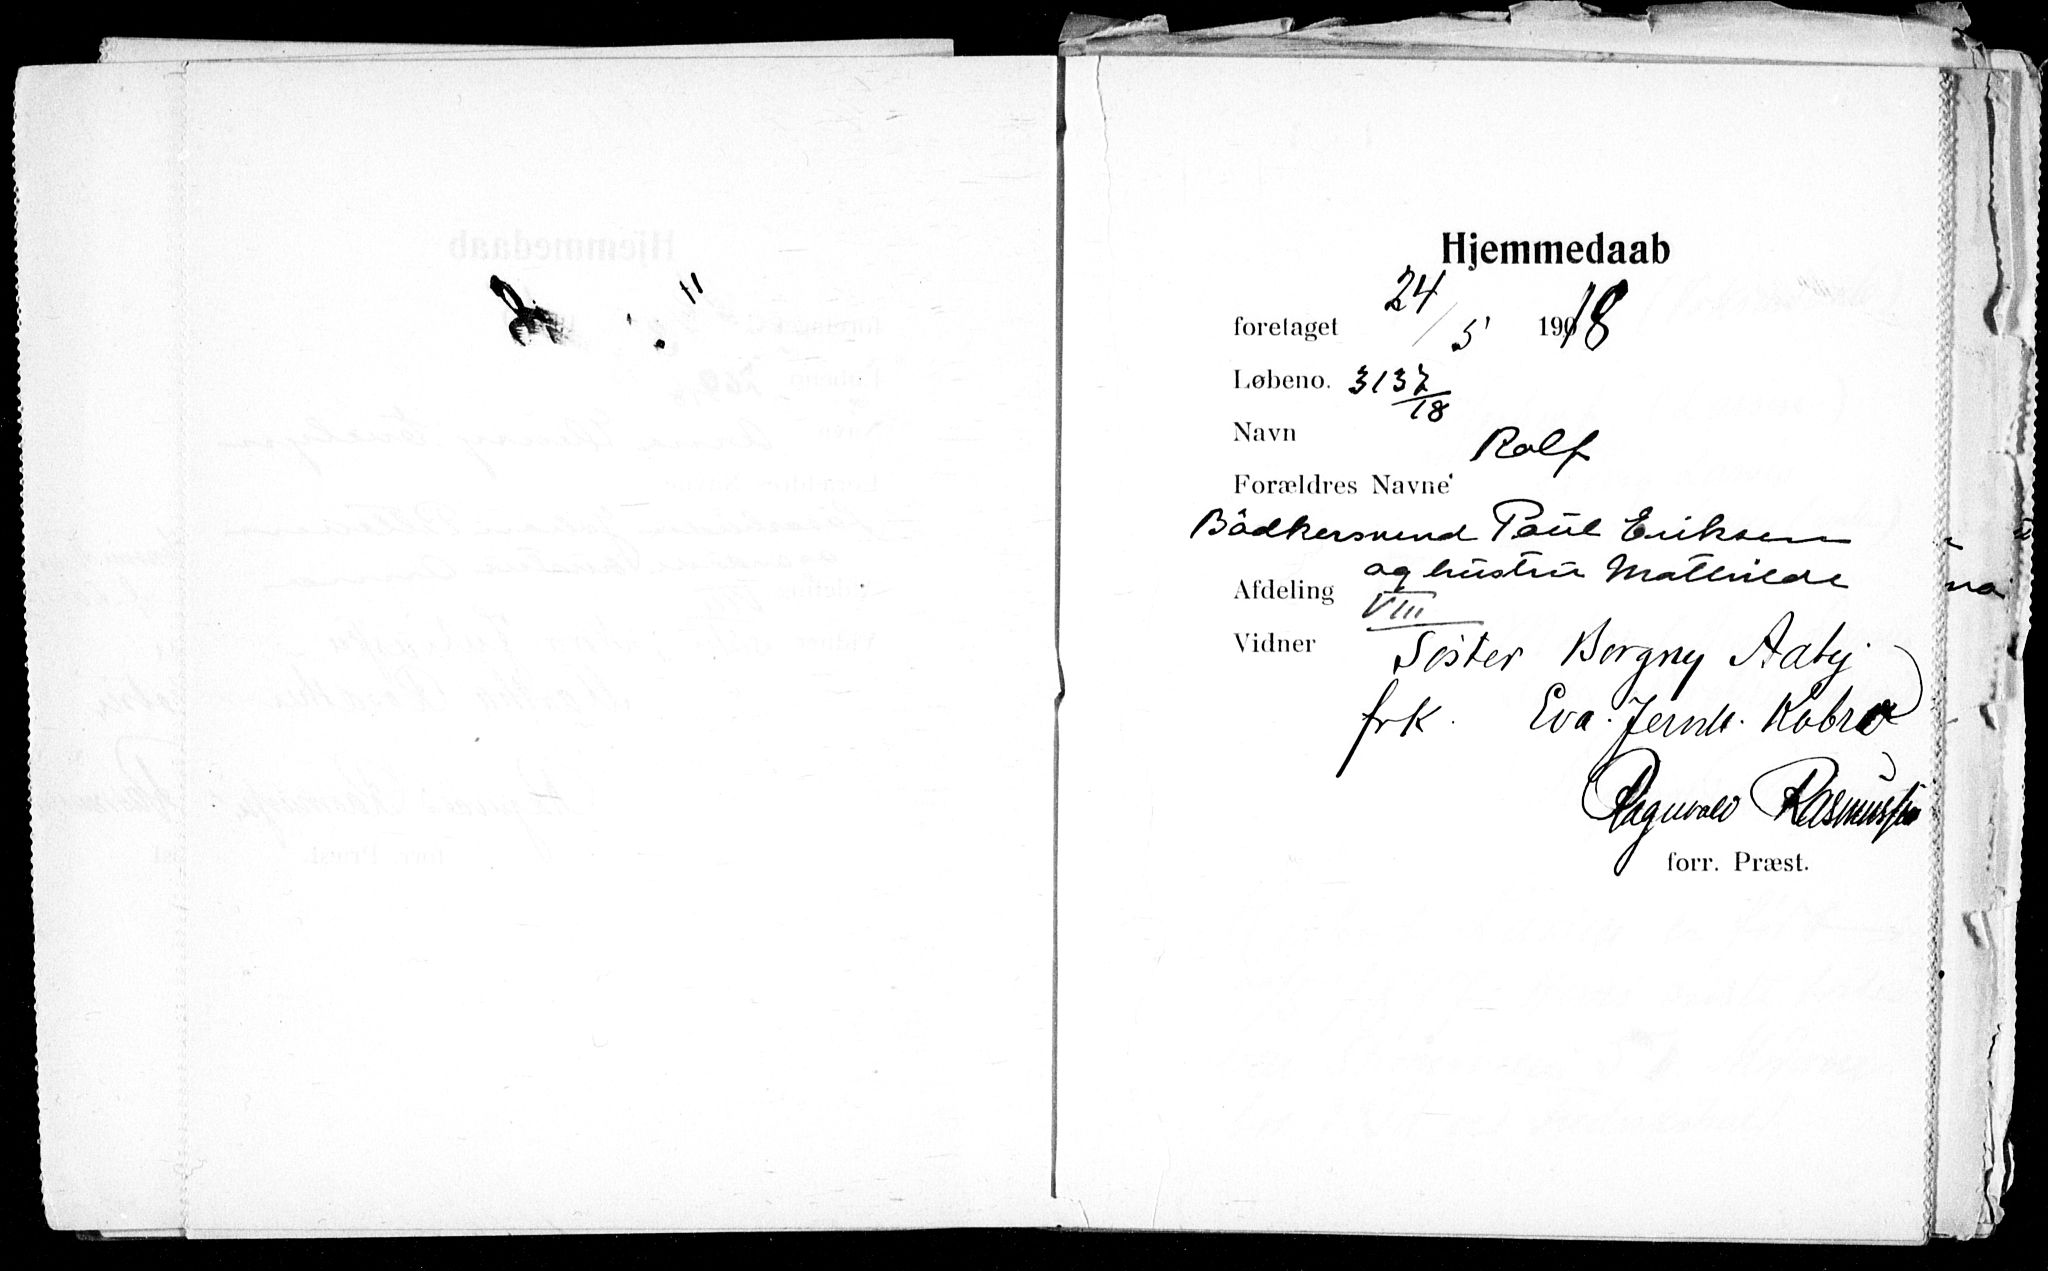 Hjemmedaab
foretaget 24/5 1918
Løbeno. 3137/18
Navn Rolf
Forældres Navne
Bödkersvend Paul Eriksen
og hustru Mathilde
Afdeling VIII
Vidner Søster Borgny Aaby
frk. Eva
Ragnvald Rasmussen
forr. Præst.